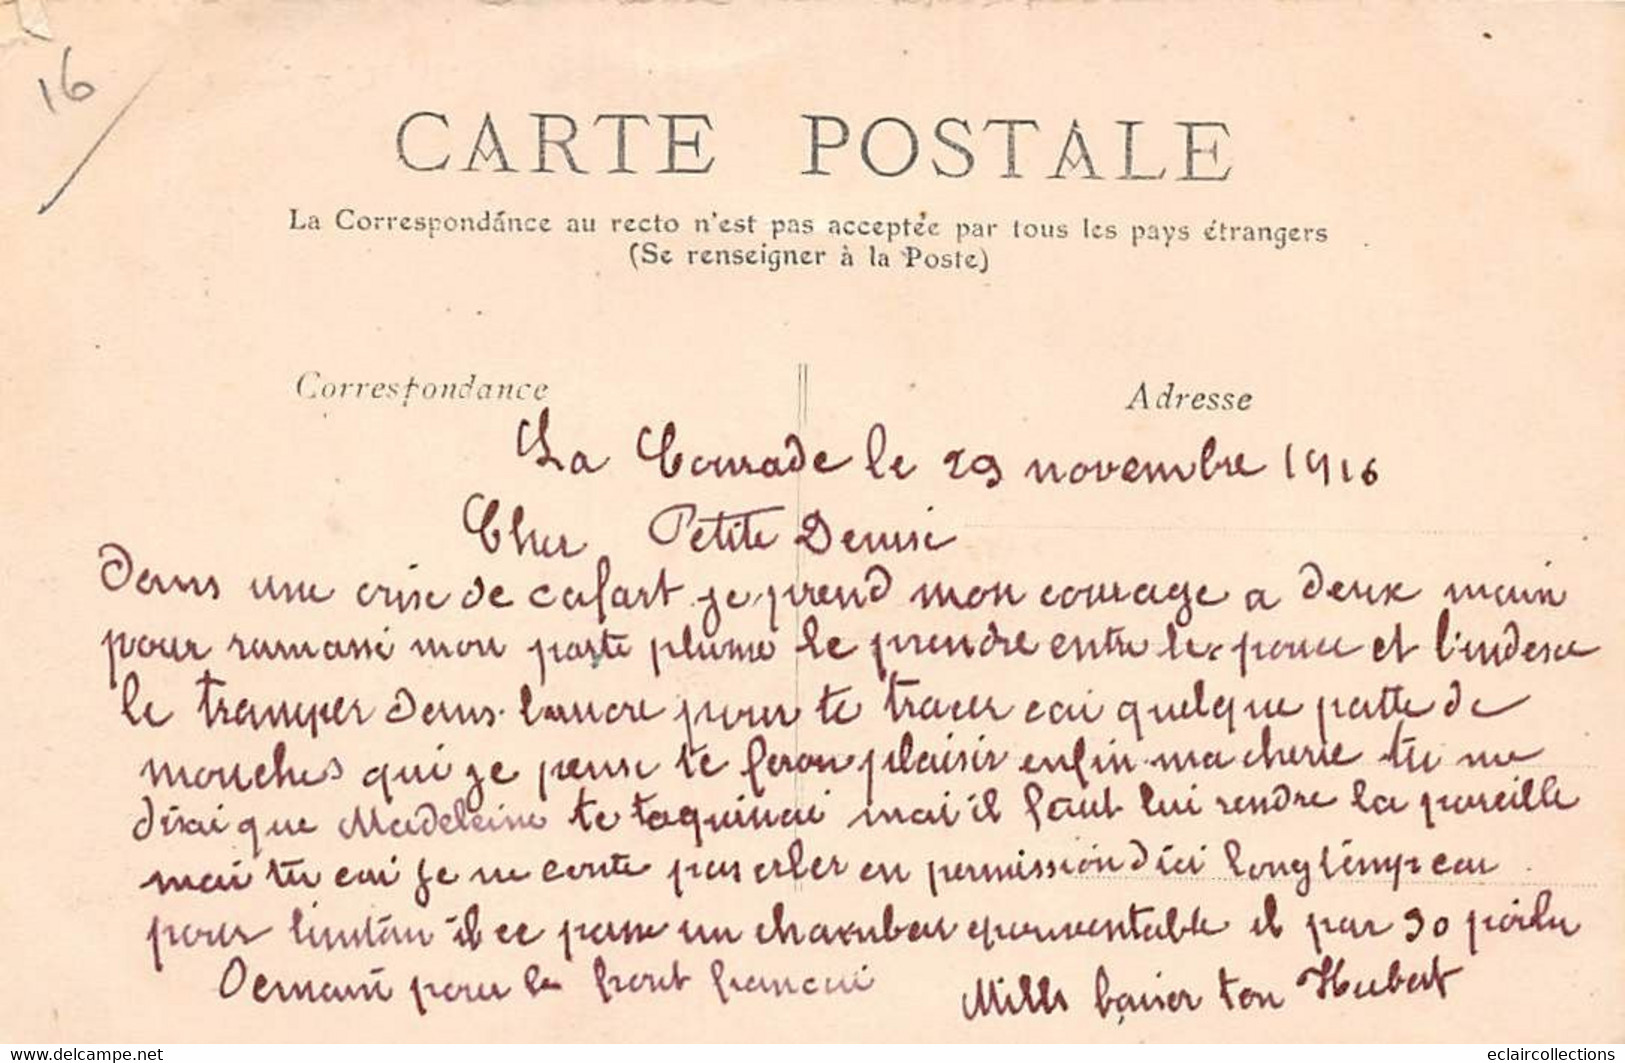 16
CARTE POSTALE
La Correspondánce au recto n'est pas acceptée par tous les pays étrangers
(Se renseigner à la Poste)
Correspondance
Adresse
La Courade le 29 novembre 1916
Cher Petite Denise
Dans une crise de cafart je prend mon courage a deux main
pour ramassé mon porte plume le prendre entre le pouce et l'indexe
le tremper dans lancre pour te tracer cai quelque patte de
mouches qui je pense te feron plaisir enfin ma cherie tu me
disai que Madeleine te taquinai mai il faut lui rendre la pareille
mai tu cai je ne conte pas aler en permission dici longtemp car
pour linstan il ce passe un chambar epouventable il par 90 poilu
Demain pour le front francai
Mills baiser ton Hubert
eclaircollections
www.delcampe.net